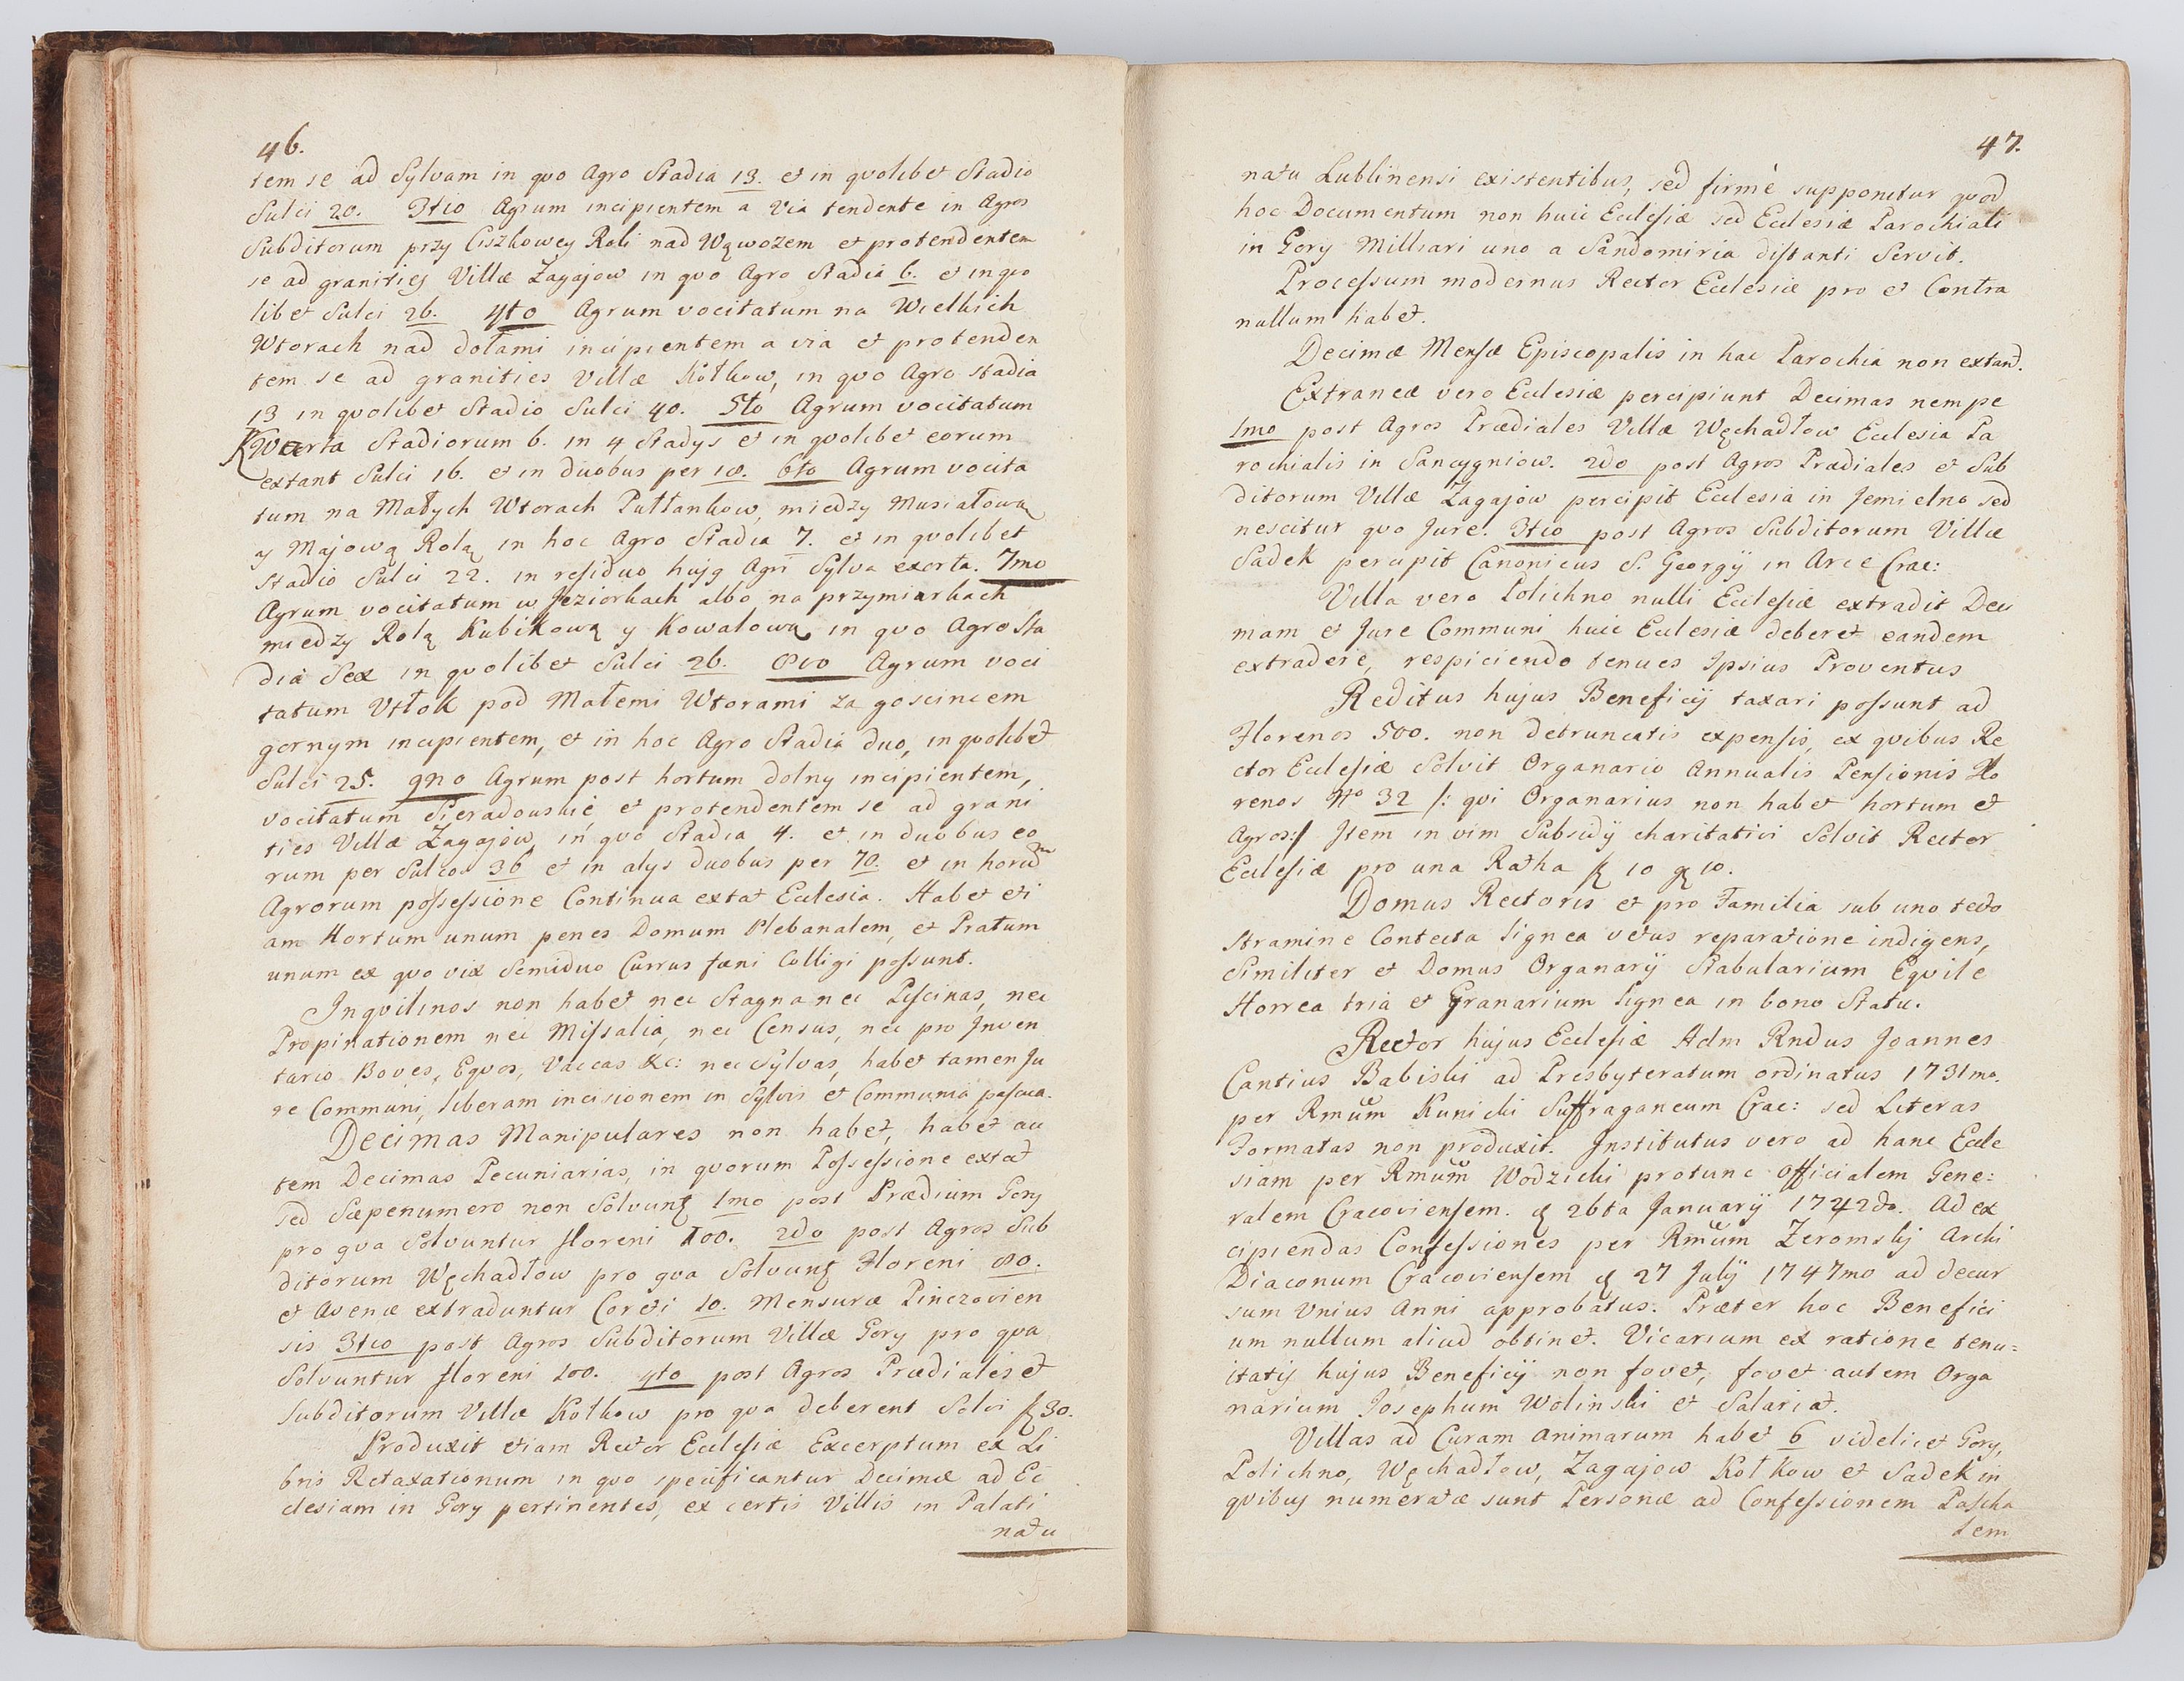 46.
tem se ad Sylvam in qvo Agro Stadia 13. et in qvolibet Stadio
Sulci 20. 3tio Agrum incipientem a Via tendente in Agros
Subditorum przy Ciszkowey Roli nad Wąwozem et protendentem
se ad granities Villæ Zagajow in qvo Agro Stadia 6. et in qvo
libet Sulci 26. 4to Agrum vocitatum na Wielkich
Wtorach nad dołami incipientem a via et protenden
tem se ad granities Villæ Kołkow, in qvo Agro stadia
13 in qvolibet Stadio Sulci 40. 5to Agrum vocitatum
Kwarta Stadiorum 6. in 4 Stadys et in qvolibet eorum
extant Sulci 16. et in duobus per 18. 6to Agrum vocita
tum na Małych Wtorach Pułłankow, miedzy Musiałową
y Majową Rolą in hoc Agro Stadia 7. et in qvolibet
Stadio Sulci 22. in residuo hujg Agri Sylva exorta. 7mo
Agrum vocitatum w Jeziorkach albo na przymiarkach
miedzy Rolą Kubikową y Kowalową in qvo Agro Sta
dia Sex in qvolibet Sulci 26. 8vo Agrum voci
tatum Vtłok pod Małemi Wtorami za goscincem
gornym incipientem, et in hoc Agro Stadia duo, in qvolibet
Sulci 25. 9no Agrum post hortum dolny incipientem,
vocitatum Sieradowskie et protendentem se ad grani
ties Villæ Zagajow, in qvo Stadia 4. et in duobus eo
rum per Sulcos 36 et in alys duobus per 70. et in horum
Agrorum possessione Continua extat Ecclesia. Habet eti
am Hortum unum penes Domum Plebanalem, et Pratum
unum ex qvo vix Semiduo Currus fæni Colligi possunt.
Inqvilinos non habet nec Stagna nec Piscinas, nec
Propinationem nec Missalia, nec Census, nec pro Inven
tario Boves, Eqvos, Vaccas &c: nec Sylvas, habet tamen Ju
re Communi, liberam incisionem in Sylvis et Communia pascua.
Decimas Manipulares non habet, habet au
tem Decimas Pecuniarias, in qvorum Possessione extat
sed Sæpenumero non Solvunt 1mo post Prædium Gory
pro qva Solvuntur floreni 100. 2do post Agros Sub
ditorum Węchadłow pro qva Solvunt Floreni 80.
et Avenæ extraduntur Coreti 10. Mensuræ Pinczovien
sis 3tio post Agros Subditorum Villæ Gory pro qva
Solvuntur floreni 100. 4to post Agros Prædiales et
Subditorum Villæ Kołkow pro qva deberent Solvi f 30.
Produxit etiam Rector Ecclesiæ Excerptum ex Li
bris Retaxationum in qvo specificantur Decimæ ad Ec
clesiam in Gory pertinentes, ex certis Villis in Palati
natu
47.
natu Lublinensi existentibus, sed firmè supponitur qvod
hoc Documentum non huic Ecclesiæ sed Ecclesiæ Parochiali
in Gory Milliari uno a Sandomiria distanti Servit.
Processum modernus Rector Ecclesiæ pro et Contra
nullum habet.
Decimæ Mensæ Episcopalis in hac Parochia non extant.
Extraneæ vero Ecclesiæ percipiunt Decimas nempe
1mo post Agros Prædiales Villæ Węchadłow Ecclesia Pa
rochialis in Sancygniow. 2do post Agros Prædiales et Sub
ditorum Villæ Zagajow percipit Ecclesia in Jemielno sed
nescitur qvo Jure. 3tio post Agros Subditorum Villæ
Sadek percipit Canonicus S. Georgij in Arce Crac:
Villa vero Polichno nulli Ecclesiæ extradit Deci
mam et Jure Communi huic Ecclesiæ deberet eandem
extradere, respiciendo tenues Ipsius Proventus
Reditus hujus Beneficij taxari possunt ad
Florenos 500. non detruncatis expensis, ex qvibus Re
ctor Ecclesiæ Solvit Organario Annualis Pensionis Flo
renos No 32 /: qvi Organarius non habet hortum et
Agros:/ Item in vim Subsidij charitativi Solvit Rector
Ecclesiæ pro una Ratha f 10 g 10.
Domus Rectoris et pro Familia sub uno tecto
Stramine Contecta lignea vetus reparatione indigens,
Similiter et Domus Organarij Stabularium Eqvile
Horrea tria et Granarium lignea in bono Statu.
Rector hujus Ecclesiæ Adm Rndus Joannes
Cantius Babiski ad Presbyteratum ordinatus 1731mo.
per Rmum Kunicki Suffraganeum Crac: sed Literas
Formatas non produxit. Institutus vero ad hanc Eccle
siam per Rmum Wodzicki protunc Officialem Gene:
ralem Cracoviensem. d 26ta Januarij 1742do. Ad ex
cipiendas Confessiones per Rmum Zeromskj Archi
Diaconum Cracoviensem d 27 Julij 1747mo ad decur
sum Vnius Anni approbatus. Præter hoc Benefici
um nullum aliud obtinet. Vicarium ex ratione tenu=
itatis hujus Beneficij non fovet, fovet autem Orga
narium Josephum Wolinski et Salariat.
Villas ad Curam Animarum habet 6 videlicet Gory,
Polichno, Węchadłow, Zagajow Kołkow et Sadek in
qvibus numeratæ sunt Personæ ad Confessionem Pascha
lem